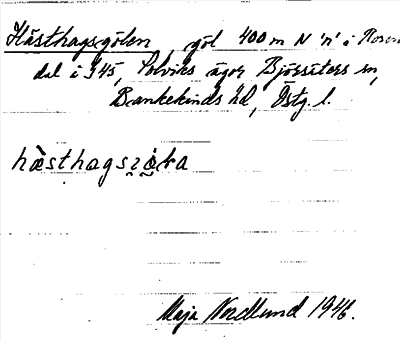 Hästhagsgölen, göl 400 m N 'n' i Rosen
dal i J45, Solviks ägor Björsäters sn,
Bankekinds hd, Östg. l.
Maja Nordlund 1946.